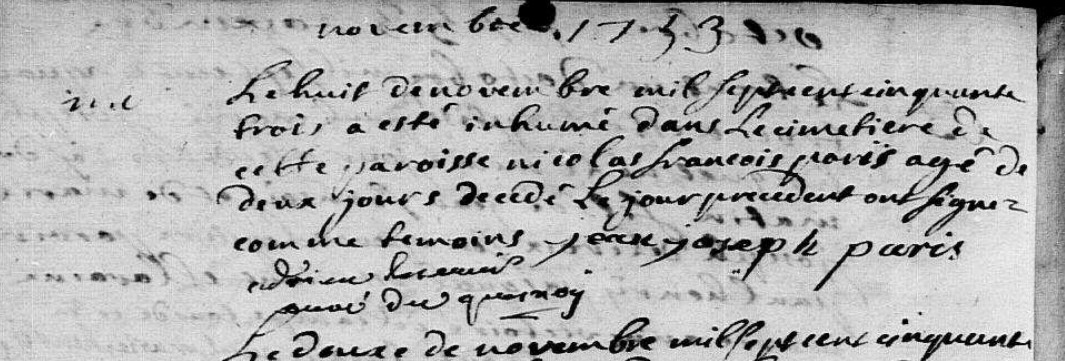 novembre 1753
Le huit de novembre mil sept cent cinquante
trois a esté inhumé dans Le cimetiere de
cette paroisse nicolas françois paris agé de
deux jours decedé Le jour precedent ont signez
comme temoins jean joseph paris
adrien
curé du quesnoÿ
Le douze de novembre mil sept cent cinquante